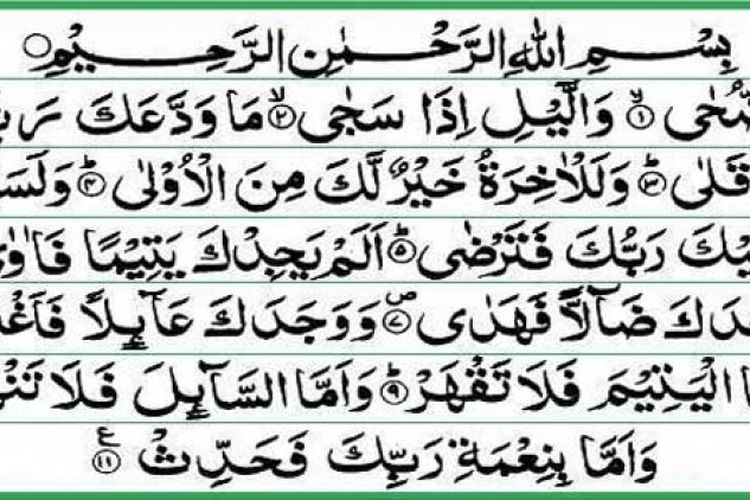 بِسْمِ اللهِ الرَّحْمٰنِ الرَّحِيْمِ
ضُّحٰى ۙ‏﴿۱﴾ وَالَّيْلِ اِذَا سَجٰى ۙ‏﴿۲﴾ مَا وَدَّعَكَ رَبُّ
قَلٰى ؕ‏﴿۳﴾ وَلَلْاٰخِرَةُ خَيْرٌ لَّكَ مِنَ الْاُوْلٰى ؕ‏﴿۴﴾ وَلَسَ
يْكَ رَبُّكَ فَتَرْضٰى ؕ‏﴿۵﴾ اَلَمْ يَجِدْكَ يَتِيْمًا فَاٰوٰى
جَدَكَ ضَآلًّا فَهَدٰى ‏﴿۷﴾ وَوَجَدَكَ عَآئِلًا فَاَغْ
ا الْيَتِيْمَ فَلَا تَقْهَرْ ؕ‏﴿۹﴾ وَاَمَّا السَّآئِلَ فَلَا تَنْهَ
وَاَمَّا بِنِعْمَةِ رَبِّكَ فَحَدِّثْ ‏﴿۱۱﴾ ع